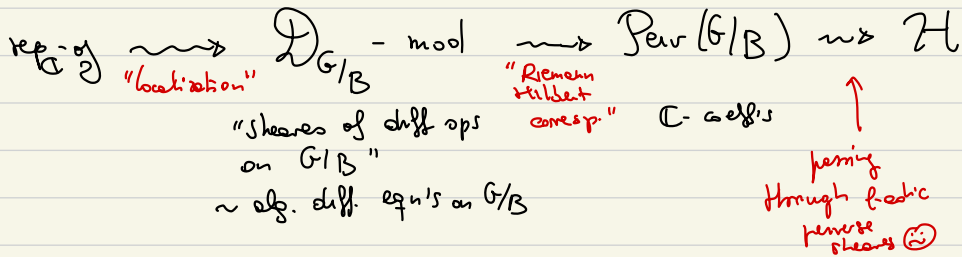 rep_ℂ of 𝔤 ⇝ 𝒟_{G/B} - mod ⇝ Perv(G/B) ⇝ ℋ
"localization"
"Riemann Hilbert corresp."
ℂ-coeff's
"sheaves of diff ops
on G/B"
~ alg. diff. eqn's on G/B
passing
through ℓ-adic
perverse
sheaves